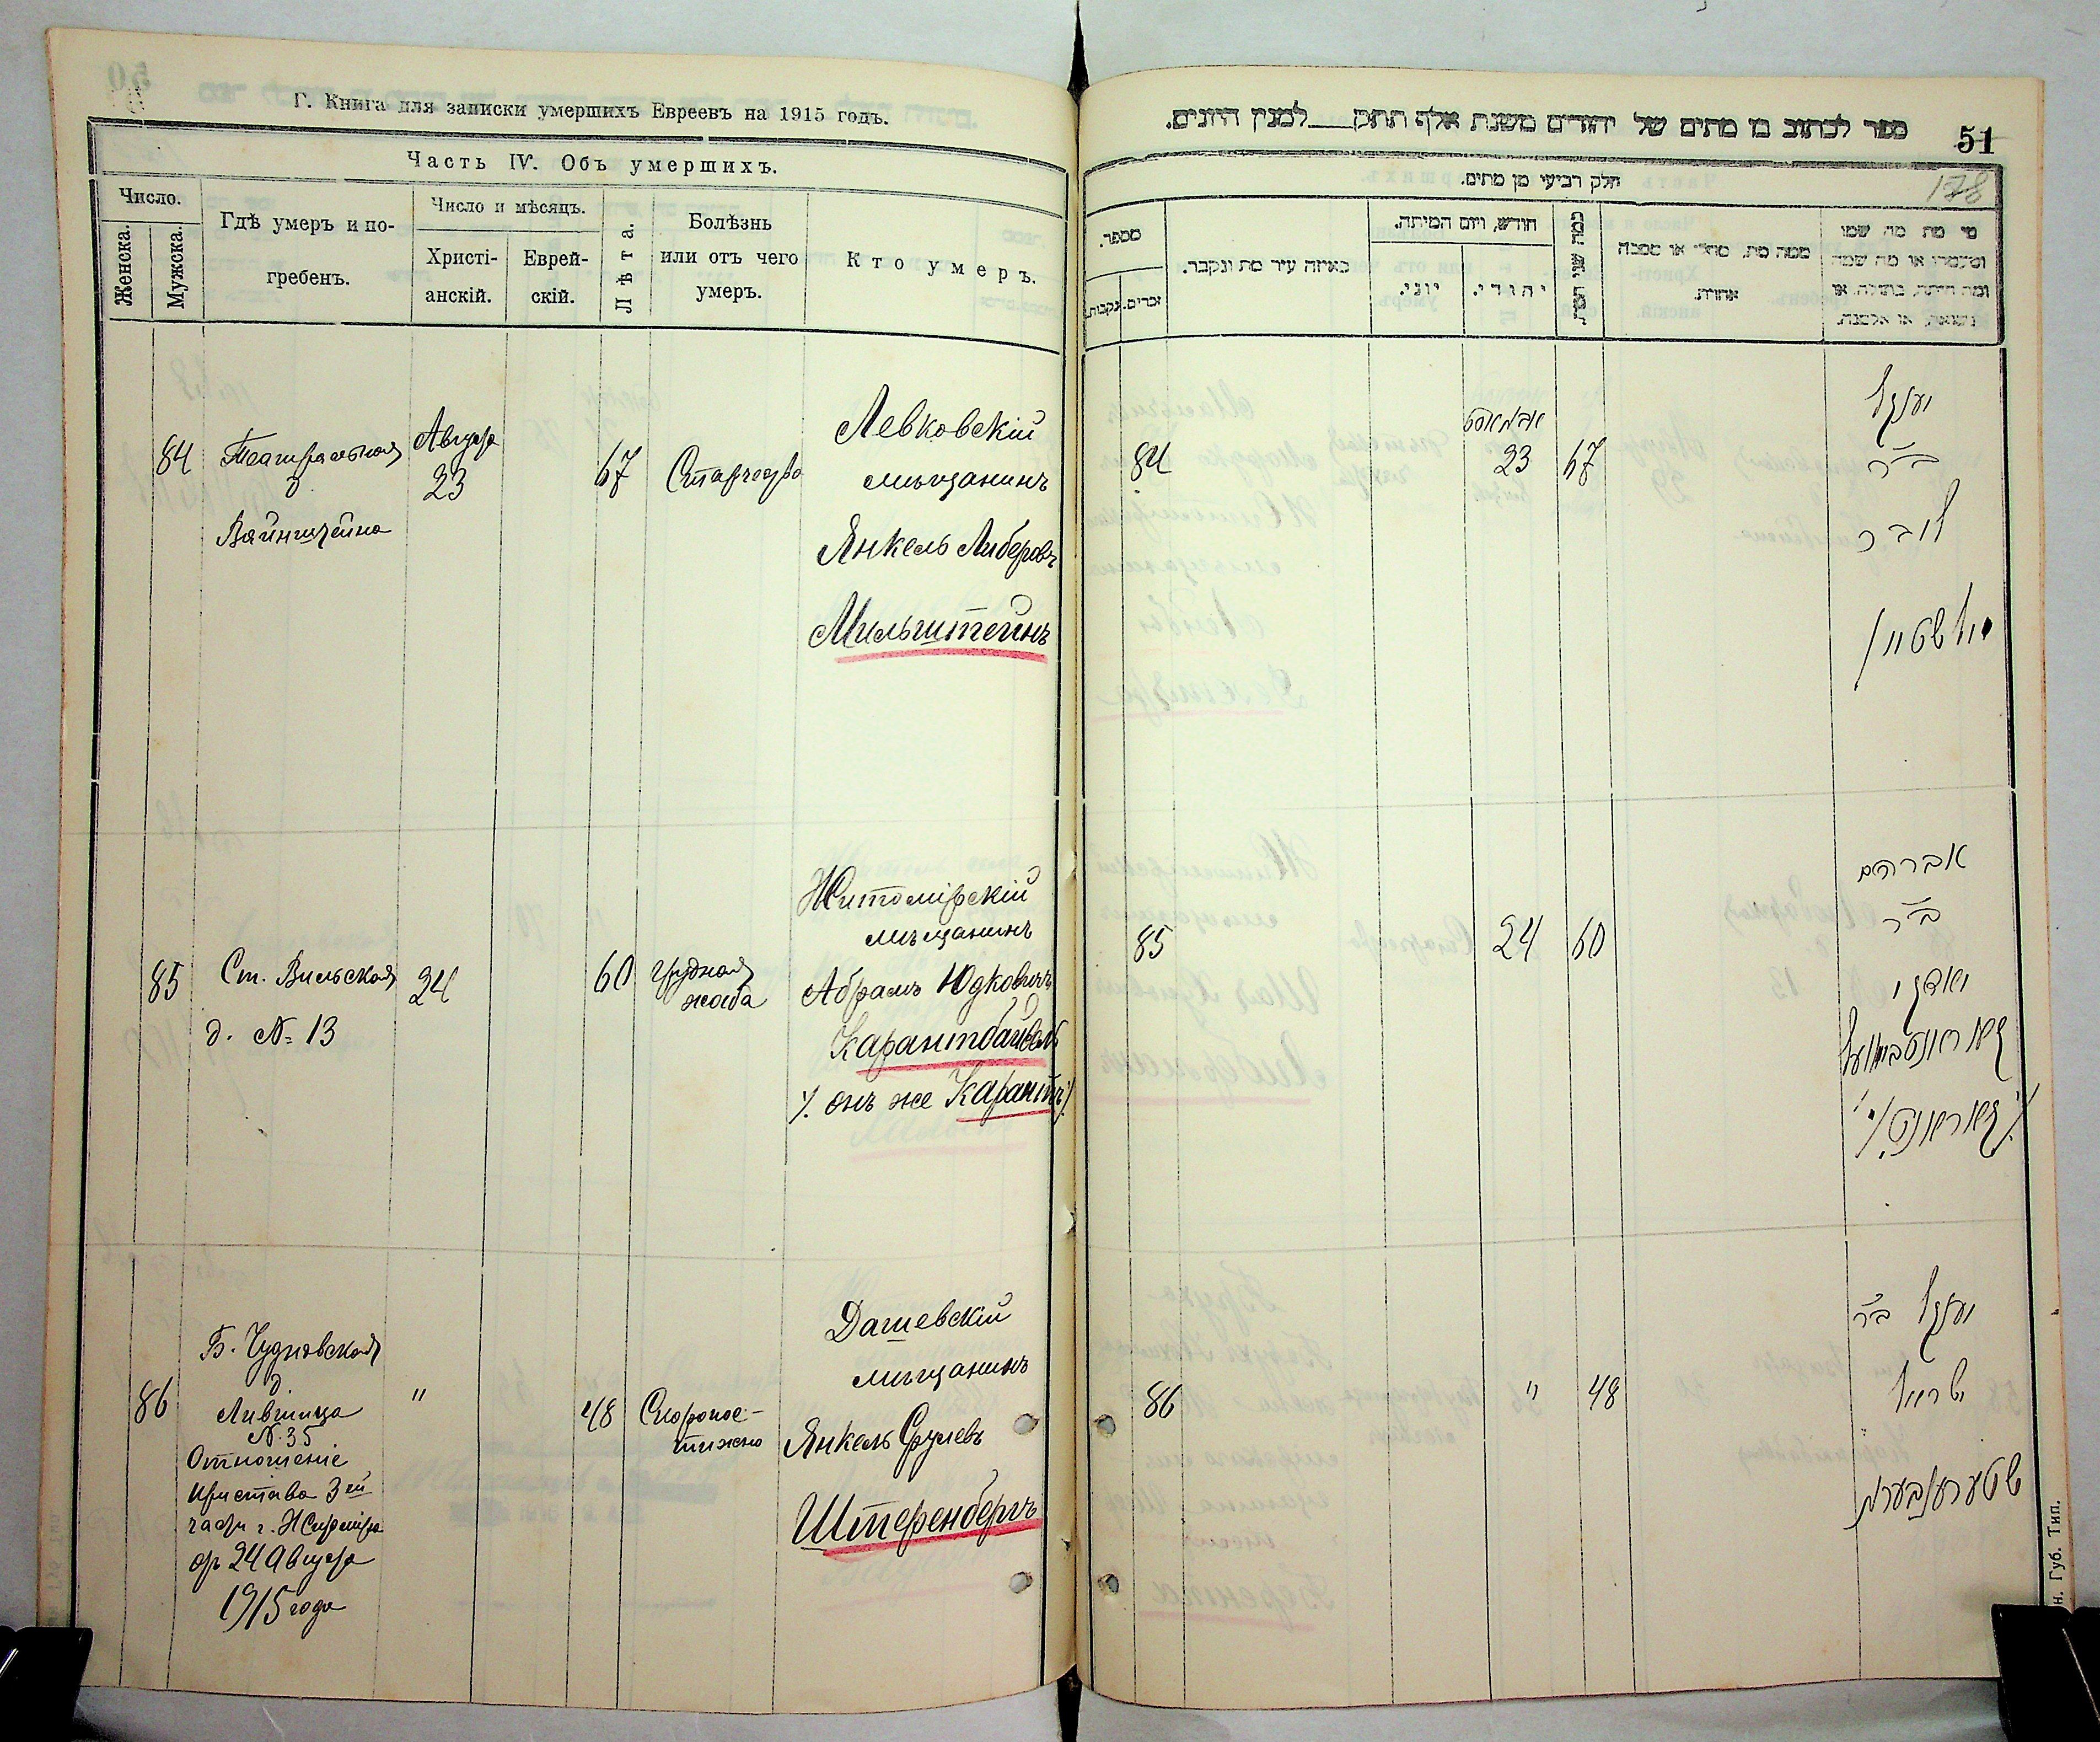 Г. Книга для записки умершихъ Евреевъ на 1915 годъ.
Часть IV. Объ умершихъ.
Число.
Женска.
Мужска.
Гдѣ умеръ и по-
гребенъ.
Число и мѣсяцъ.
Христі-
анскій.
Еврей-
скій.
Лѣта.
Болѣзнь
или отъ чего
умеръ.
Кто умеръ.
84
Театральная
д
Вайнштейна
Августа
23
67
Старость
Левковскій
мѣщанинъ
Янкель Либеровъ
Мильштейнъ
85
Ст. Вильская
д. № 13
24
60
грудная
жаба
Житомірскій
мѣщанинъ
Абрамъ Юдковичъ
Карантбайвель
/. онъ же Карантъ /.
86
Б. Чудновская
д
Лившица
№ 35
Отношеніе
Пристава 3ей
части г. Житоміра
отъ 24 Августа
1915 года
"
48
Скоропос-
тижно
Дашевскій
мѣщанинъ
Янкель Срулевъ
Штеренбергъ
ספר לכתוב בו מתים של יהודים משנת אלף תתק למנין היונים.
51
178
חלק רביעי מן מתים.
מספר.
נקבות.
זכרים.
באיזה עיר מת ונקבר.
חודש, ויום המיתה.
יוני.
יהודי.
כמה שני המת
ממה מת, מחלי או מסבה
אחרת.
מי מת מה שמו
ומעמדו או מה שמה
ומה היתה, בתולה, או
נשואה, או אלמנה.
84
אבגוסט
23
67
יענקל
ב״ר
ליבר
מילשטיין
85
24
60
אברהם
ב״ר
יודקי
קאראנטבייוועל
/. קאראנט /.
86
"
48
יענקל ב״ר
ישראל
שטערענבערג
н. Губ. Тип.